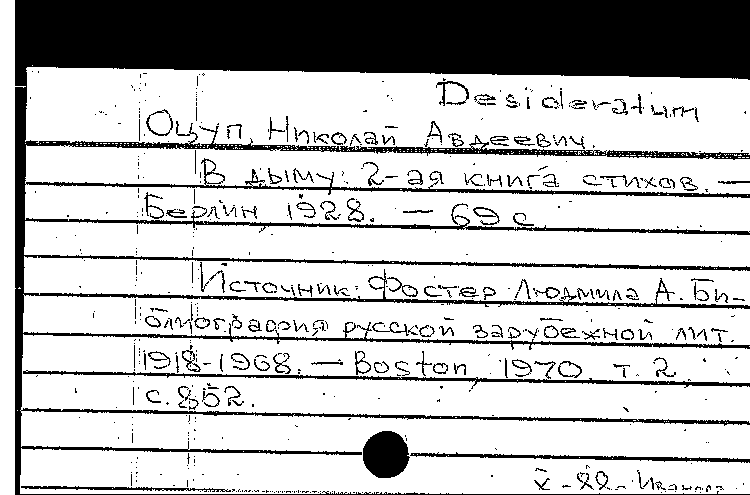 Desideratum
Оцуп, Николай Авдеевич.
В дыму: 2-ая книга стихов. —
Берлин, 1928. — 69 с.
Источник: Фостер Людмила А. Би-
блиография русской зарубежной лит.
1918-1968. — Boston, 1970. т. 2,
с. 852.
V - 22 -